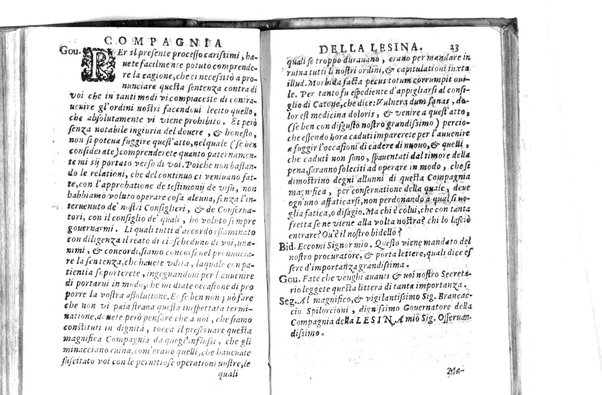 COMPAGNIA
Gou. PEr il presente processo carissimi, ha-
uete facilmente potuto comprende-
re la cagione, che ci necessitò a pro-
nunciare questa sentenza contra di
voi che in tanti modi vi compiaceste di contra-
uenire gl'ordini nostri facendoui lecito quello,
che absolutamente vi viene vietato. Et però
senza notabile ingiuria del douere, & honesto,
non si poteua fuggire quest'atto, nelquale (se ben
considerarete) comprenderete quanto paternamen-
te mi sij portato verso di voi. Poiche non bastan-
do le relationi, che del continuo ci veniuano fat-
te, con l'approbatione de testimonij de visu, non
habbiamo voluto operare cosa alcuna, senza l'in-
teruento de' nostri Consiglieri, & de Conserua-
tori, con il consiglio de' quali, ho voluto sempre
gouernarmi. Li quali tutti d'accordo esaminato
con diligenza il reato di ciascheduno di voi, una-
nimi, & concordi siamo concorsi nel pronuncia-
re la sentenza, che hauete vdita, laquale con pa-
tientia sopporterete, ingegnandoui per l'auuenire
di portarui in modo, che mi diate occasione di pro
porre la vostra assolutione. Et se ben non può fare
che non vi paia strana questa inaspettata termi-
natione, douete però pensare che a noi, che siamo
constituti in dignità, tocca il preseruare questa
magnifica Compagnia da quegl'influssi, che gli
minacciano ruina, com'erano quelli, che haueuate
suscitato voi con le pernitiose operationi uostre, le
quali
DELLA LESINA. 23
quali se troppo durauano, erano per mandare in
ruina tutti li nostri ordini, & capitulationi iuxta
illud. Morbida facta pecus totum corrumpit oui-
le. Per tanto fu espediente d'appigliarsi al consi-
glio di Catone, che dice: Vulnera dum sanas, do-
lor est medicina doloris, & venire a quest'atto,
(se ben con disgusto nostro grandissimo) percio-
che essendo hora caduti imparerete per l'auuenire
a fuggir l'occasioni di cadere di nuouo, & quelli,
che caduti non sono, spauentati dal timore della
pena, saranno solleciti ad operare in modo, che si
dimostrino degni allunni di questa Compagnia
magnifica, per conseruatione della quale, deue
ogn'uno affaticarsi, non perdonando a qual si uo-
glia fatica, o disagio. Ma chi è colui, che con tanta
fretta se ne viene alla volta nostra? chi lo lascia
entrare? Ou'è il nostro bidello?
Bid. Eccomi Signor mio. Questo viene mandato del
nostro procuratore, & porta lettere, quali dice es
sere d'importanza grandissima.
Gou. Fate che venghi auanti & uoi nostro Secreta-
rio leggete questa littera di tanta importanza.
Seg. Al magnifico, & vigilantissimo Sig. Brancac-
cio Spilorcioni, dignissimo Gouernatore della
Compagnia della LESINA mio Sig. Osseruan-
dissimo.
Ma-